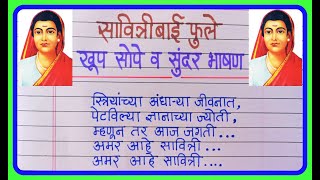 सावित्रीबाई फुले
खूप सोपे व सुंदर भाषण
स्त्रियांच्या अंधाऱ्या जीवनात,
पेटविल्या ज्ञानाच्या ज्योती,
म्हणून तर आज जगती ...
अमर आहे सावित्री ...
अमर आहे सावित्री ....